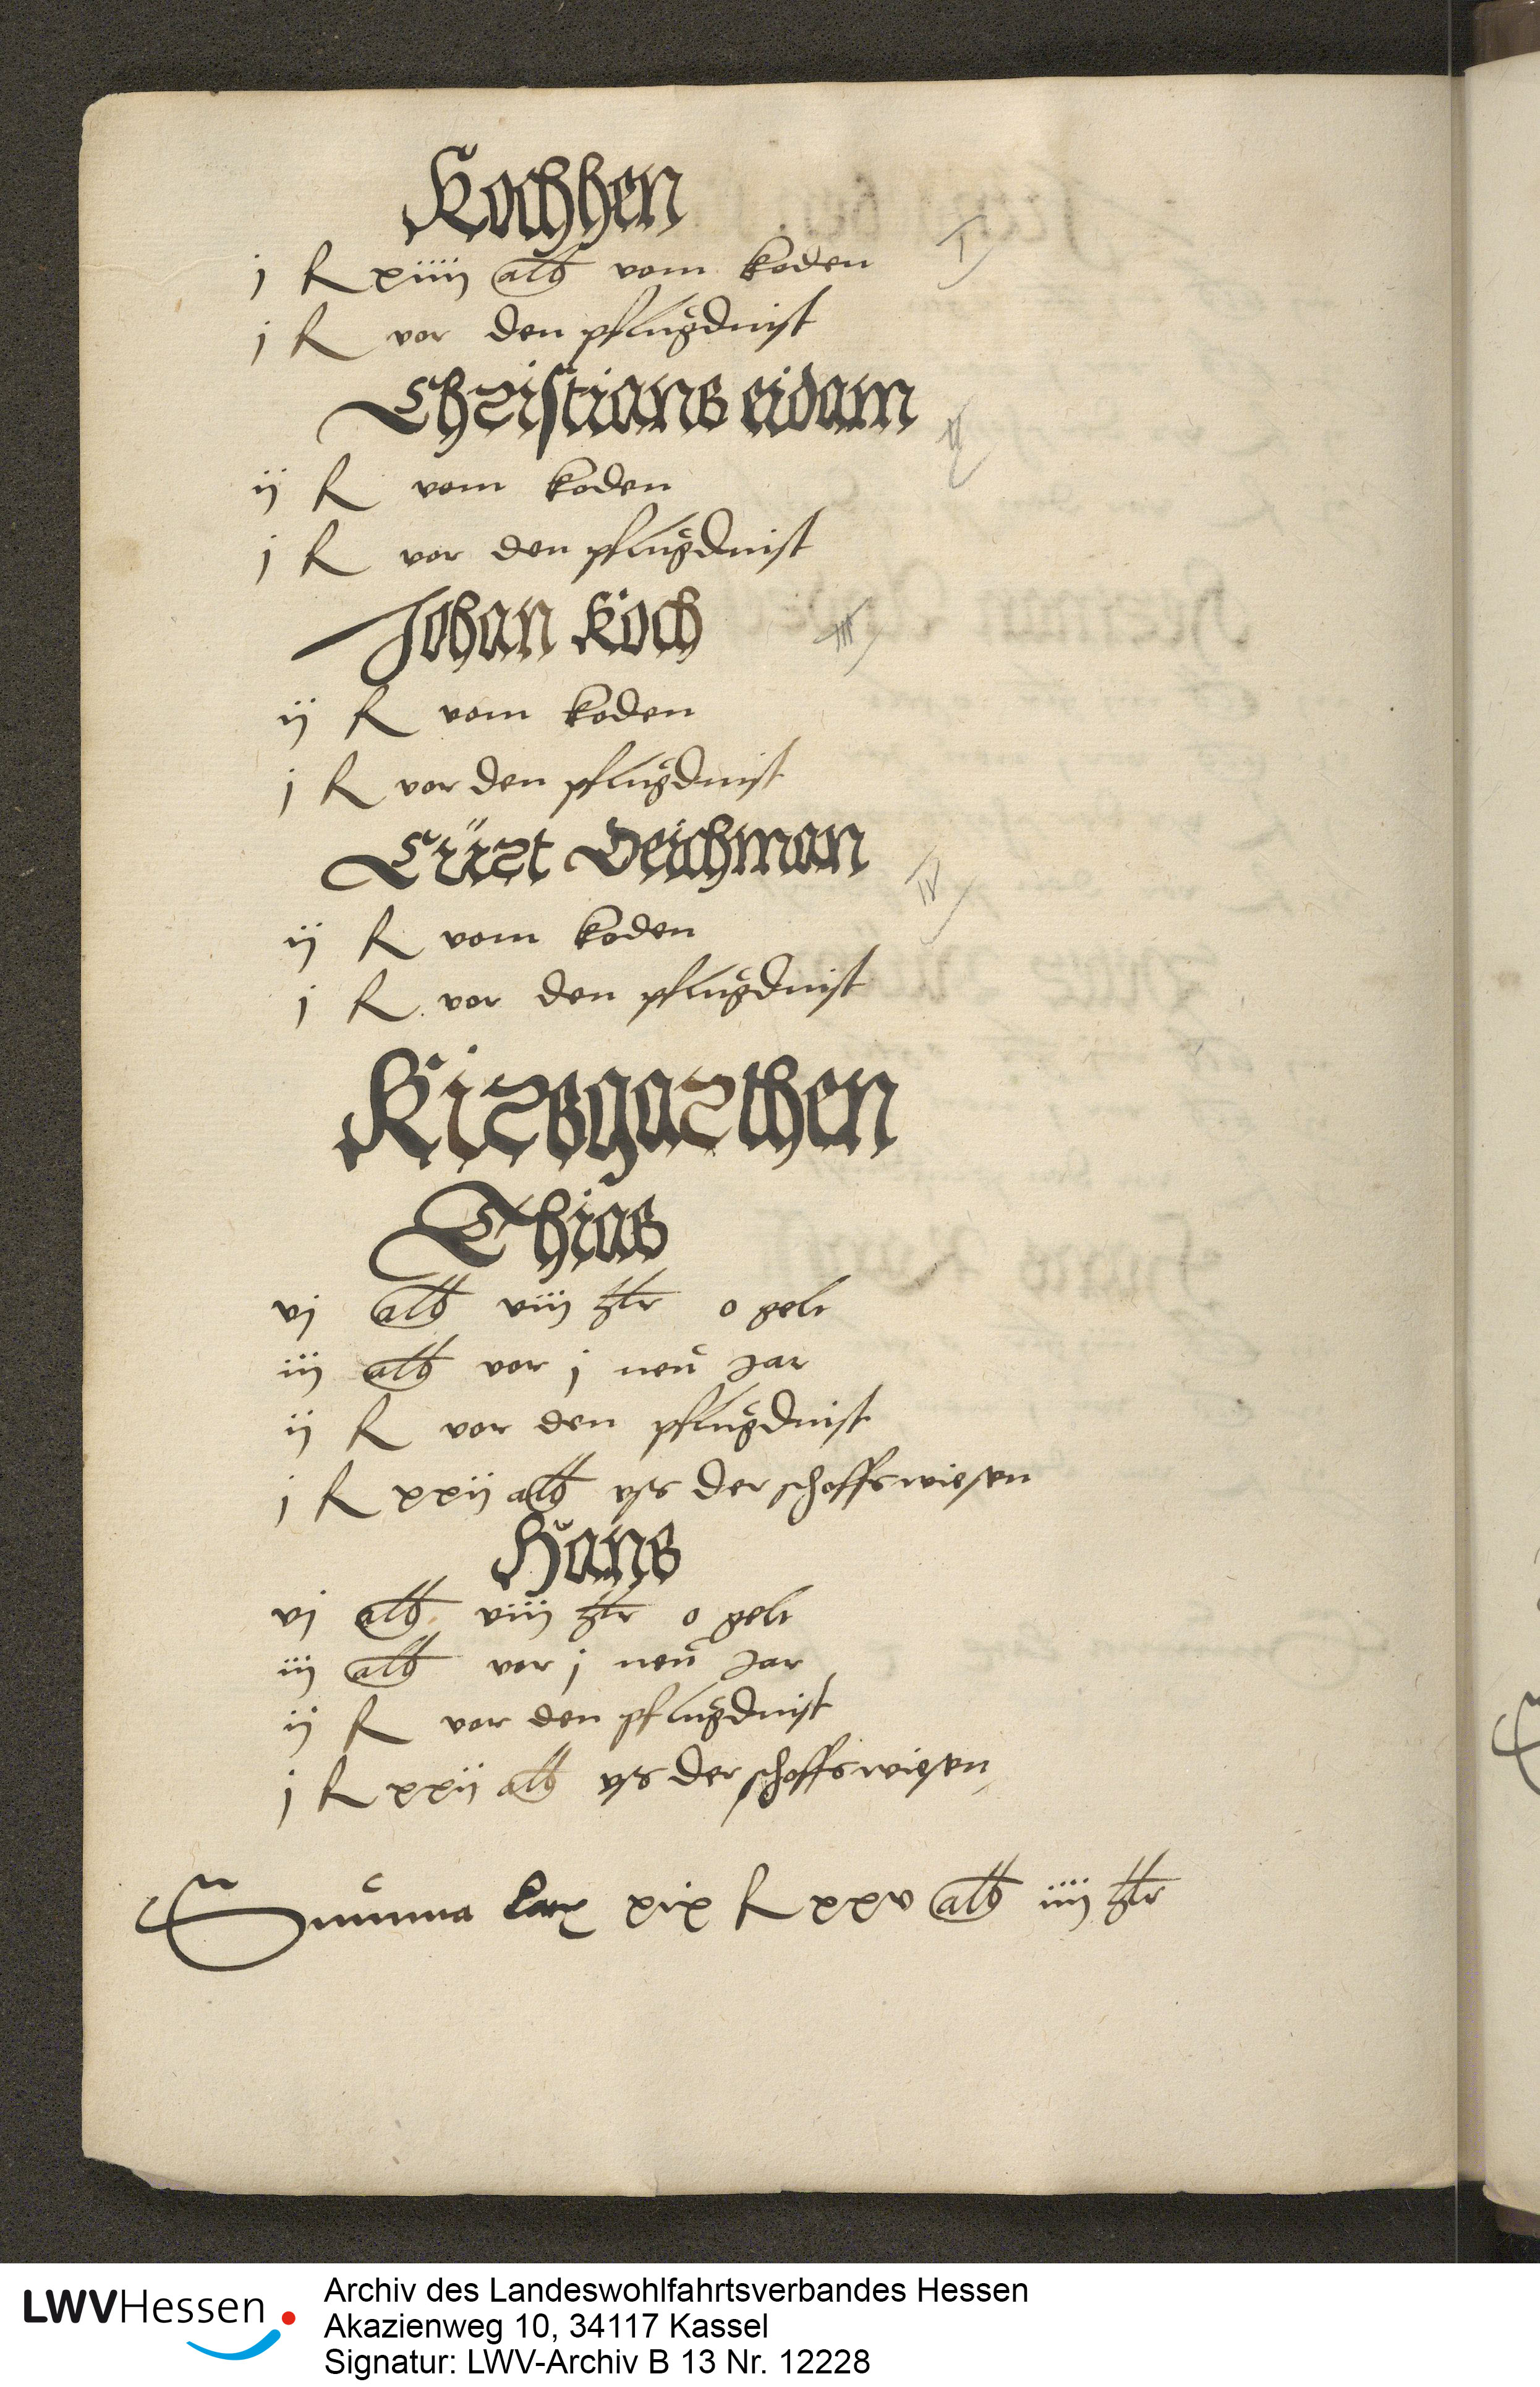 Kochhen
j fl xiiij alb vom koden
I
j fl vor den pflugdinst
Christians eidam
II
ij fl vom koden
j fl vor den pflugdinst
Johan Koch
III
ij fl vom koden
j fl vor den pflugdinst
Curt Deichman
IV
ij fl vom koden
j fl vor den pflugdinst
Kirsgarthen
Thias
vj alb viij hlr o gelt
iij alb vor j neu Jar
ij fl vor den pflugdinst
j fl xxij alb uss der schoffswiesen
Hans
vj alb viij hlr o gelt
iij alb vor j neu Jar
ij fl vor den pflugdinst
j fl xxij alb uss der schoffswiesen
Summa xix fl xxv alb iiij hlr
LWVHessen
Archiv des Landeswohlfahrtsverbandes Hessen
Akazienweg 10, 34117 Kassel
Signatur: LWV-Archiv B 13 Nr. 12228